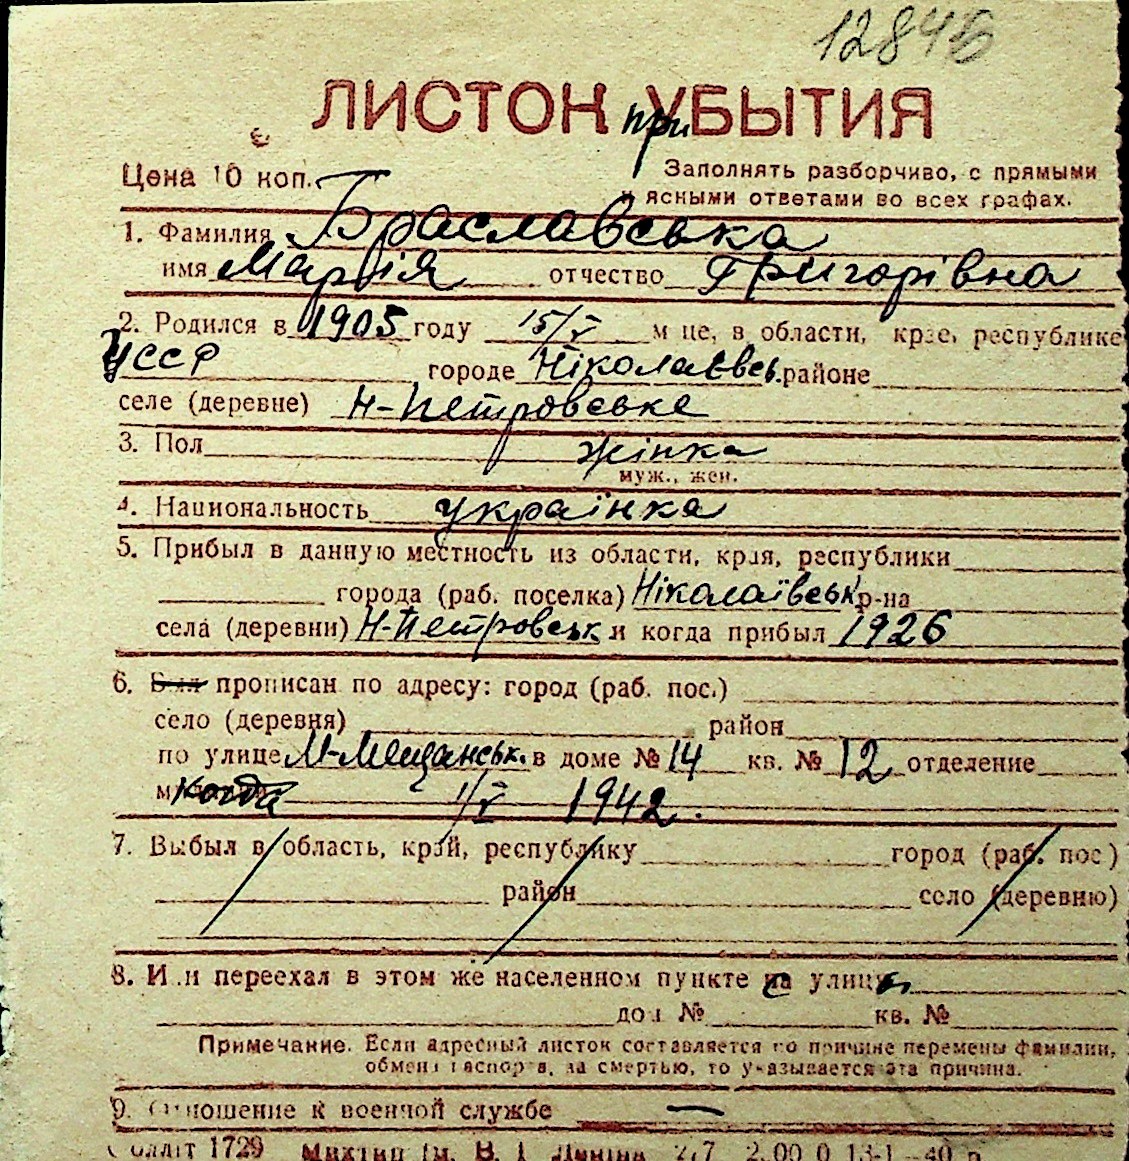 12845
ЛИСТОК при УБЫТИЯ
Цена 10 коп.
Заполнять разборчиво, с прямыми
и ясными ответами во всех графах.
1. Фамилия Браславська
имя Марія отчество Григорівна
2. Родился в 1905 году 15/V м це, в области, крае, республике
УССР городе Ніколаєвсь. районе
селе (деревне) Н-Петровське
3. Пол жінка
муж., жен.
4. Национальность українка
5. Прибыл в данную местность из области, края, республики
города (раб. поселка) Ніколаївськ р-на
села (деревни) Н-Петровськ и когда прибыл 1926
6. Был прописан по адресу: город (раб. пос.)
село (деревня) район
по улице М-Мещанськ. в доме № 14 кв. № 12 отделение
когда 1/V 1942.
7. Выбыл в область, край, республику город (раб. пос)
район село (деревню)
8. И и переехал в этом же населенном пункте с улицы
дом № кв. №
Примечание. Если адресный листок составляется по причине перемены фамилии,
обмена паспорта, за смертью, то указывается эта причина.
9. Отношение к военной службе —
1729 В. І. Леніна